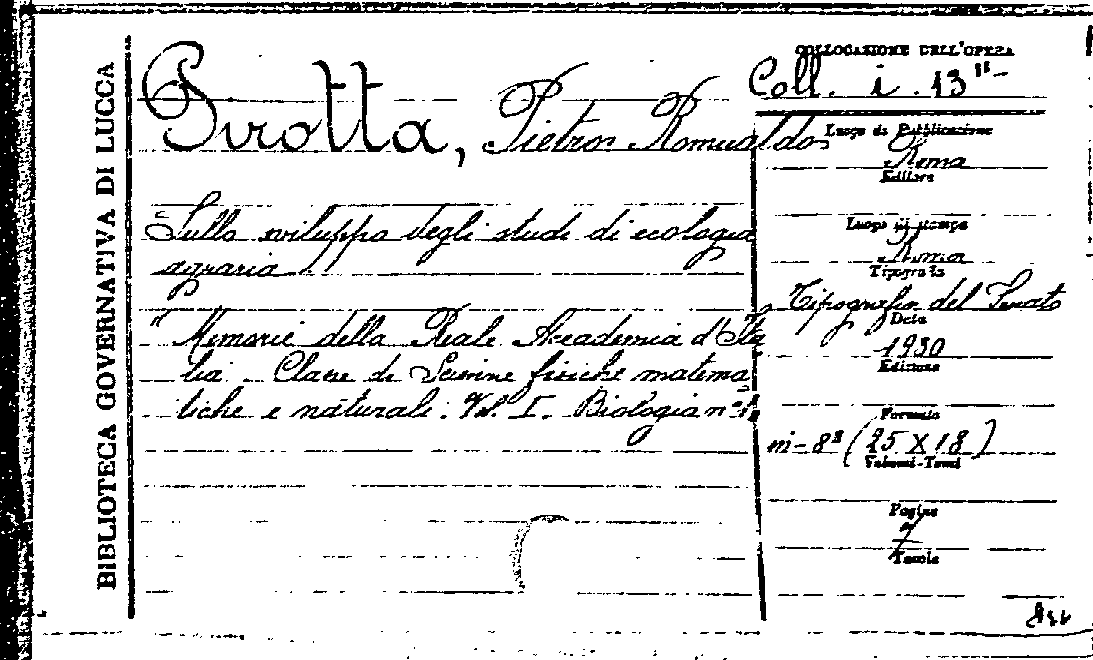 BIBLIOTECA GOVERNATIVA DI LUCCA
Pirotta, Pietro Romualdo
Sullo sviluppo degli studi di ecologia
agraria
"Memorie della Reale Accademia d'Ita
lia. Classe di Scienze fisiche matema
tiche e naturali. Vol. I. Biologia n°
COLLOCAZIONE DELL'OPERA
Coll. i. 13"-
Luogo di Pubblicazione
Roma
Editore
Luogo di stampa
Roma
Tipografia
Tipografia del Senato
Data
1930
Edizione
Formato
in-8° (25 X 18)
Volumi-Tomi
Pagine
7
Tavole